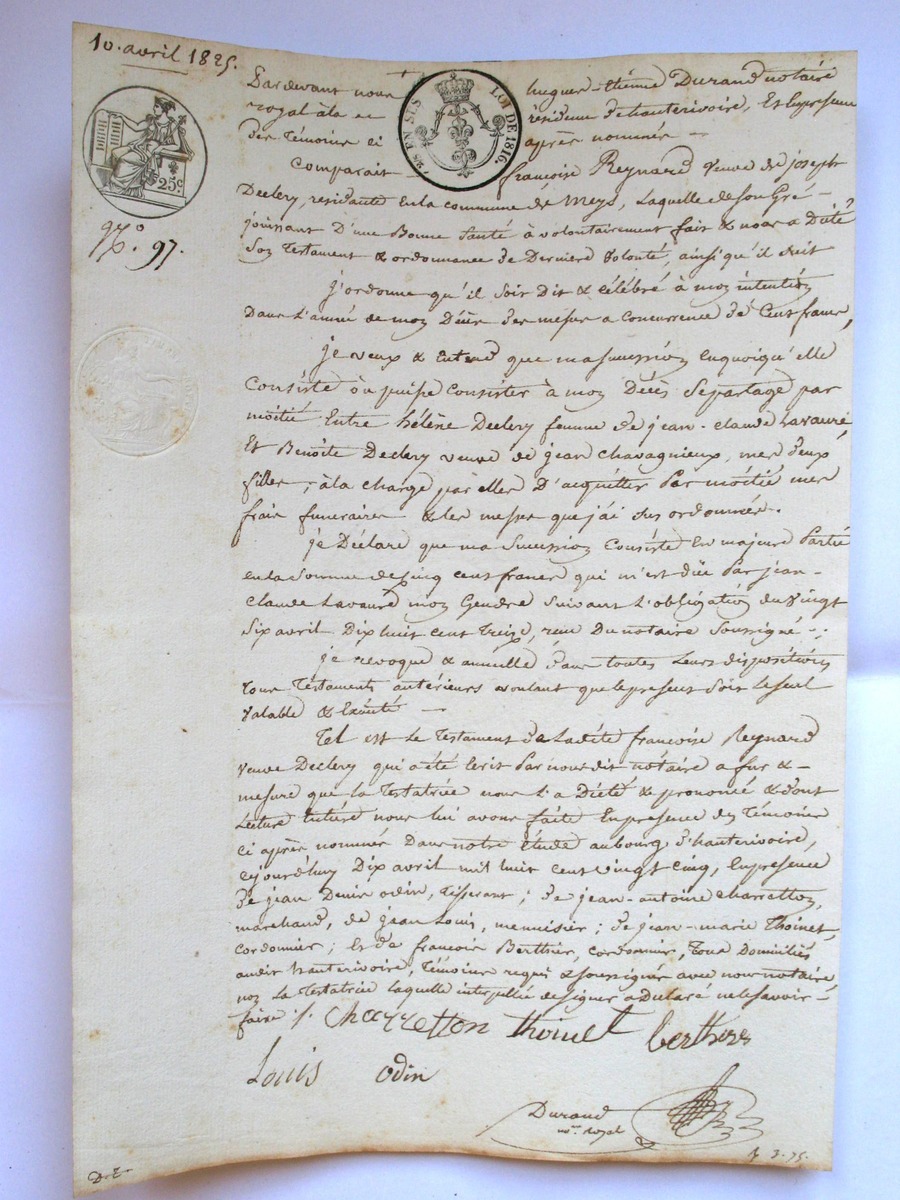 10. avril 1825.
Pardevant nous hugues étienne Durand notaire
royal à la résidence d'hauterivoire, Et En presence
des Témoins ci après nommés —
EN SUS
LOI DE 1816
25c
Comparait françoise Reynard veuve de joseph
97.
Declery, residante En la commune de meys, Laquelle de Son Gré -
jouissant D'une Bonne Santé à volontairement fait & nous a Dicté
Son Testament & ordonnance de Derniere volonté, ainsi qu'il suit
j'ordonne qu'il soit Dit & célébré à mon intention
Dans L'année de mon Décès des messes a concurrence de Cent francs,
je veux & Entend que ma succession En quoi qu'elle
Consiste ou puisse Consister à mon Décès Se partage par
moitié Entre hélène Declery femme de jean-claude Lavaure,
Et Benoîte Declery veuve de jean Chavagnieux, mes deux
filles, à la charge par elles D'acquitter Par moitié mes
frais funeraires & les messes que j'ai Sus ordonnés.
je Déclare que ma Succession Consiste En majeure Partie
en la Somme de Cinq cent francs qui m'est düe Par jean-
claude Lavaure mon Gendre Suivant L'obligation du vingt
Six avril Dix huit cent Treize, reçu Du notaire Soussigné -
je revoque & annulle dans toutes Leurs dispositions
Tous Testaments antérieurs voulant que le present Soit Le Seul
valable & Exécuté —
Tel est Le Testament de Ladite françoise Reynard
veuve Declery qui a été Ecrit Par nous dit notaire a fur & -
mesure que la Testatrice nous L'a Dicté & prononcé & dont
Lecture Entière nous lui avons faite En presence des Témoins
ci après nommés Dans notre Etude au bourg d'hauterivoire,
cejourd'huy Dix avril mil huit cent vingt cinq, En presence
de jean Denis odin, Tisserant; de jean-antoine Charretton,
marchand, de jean Louis, mennisier; de jean-marie Thoinet,
cordonnier; Et de francois Berthier, cordonnier, Tous Domiciliés
audit hauterivoire, Témoins requis & Soussignés avec nous notaire
non La Testatrice Laquelle interpellée de signer a Déclaré ne le Savoir -
faire /. Charretton Thoinet berthier
Louis odin
Durand
nre. royal
D. E.